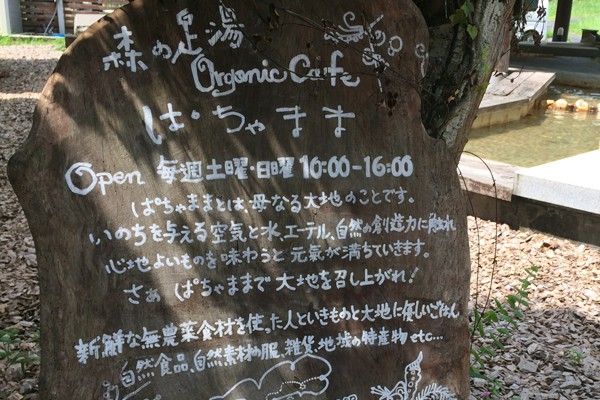 森の足湯
Organic Cafe
ぱちゃまま
Open 毎週土曜・日曜 10:00-16:00
ぱちゃままとは、母なる大地のことです。
いのちを与える空気と水、エーテル、自然の創造力に触れ
心地よいものを味わうと元氣が満ちていきます。
さぁ ぱちゃままで大地を召し上がれ!
新鮮な無農薬食材を使った人といきものと大地に優しいごはん
自然食品、自然素材の服、雑貨 地域の特産物 etc...